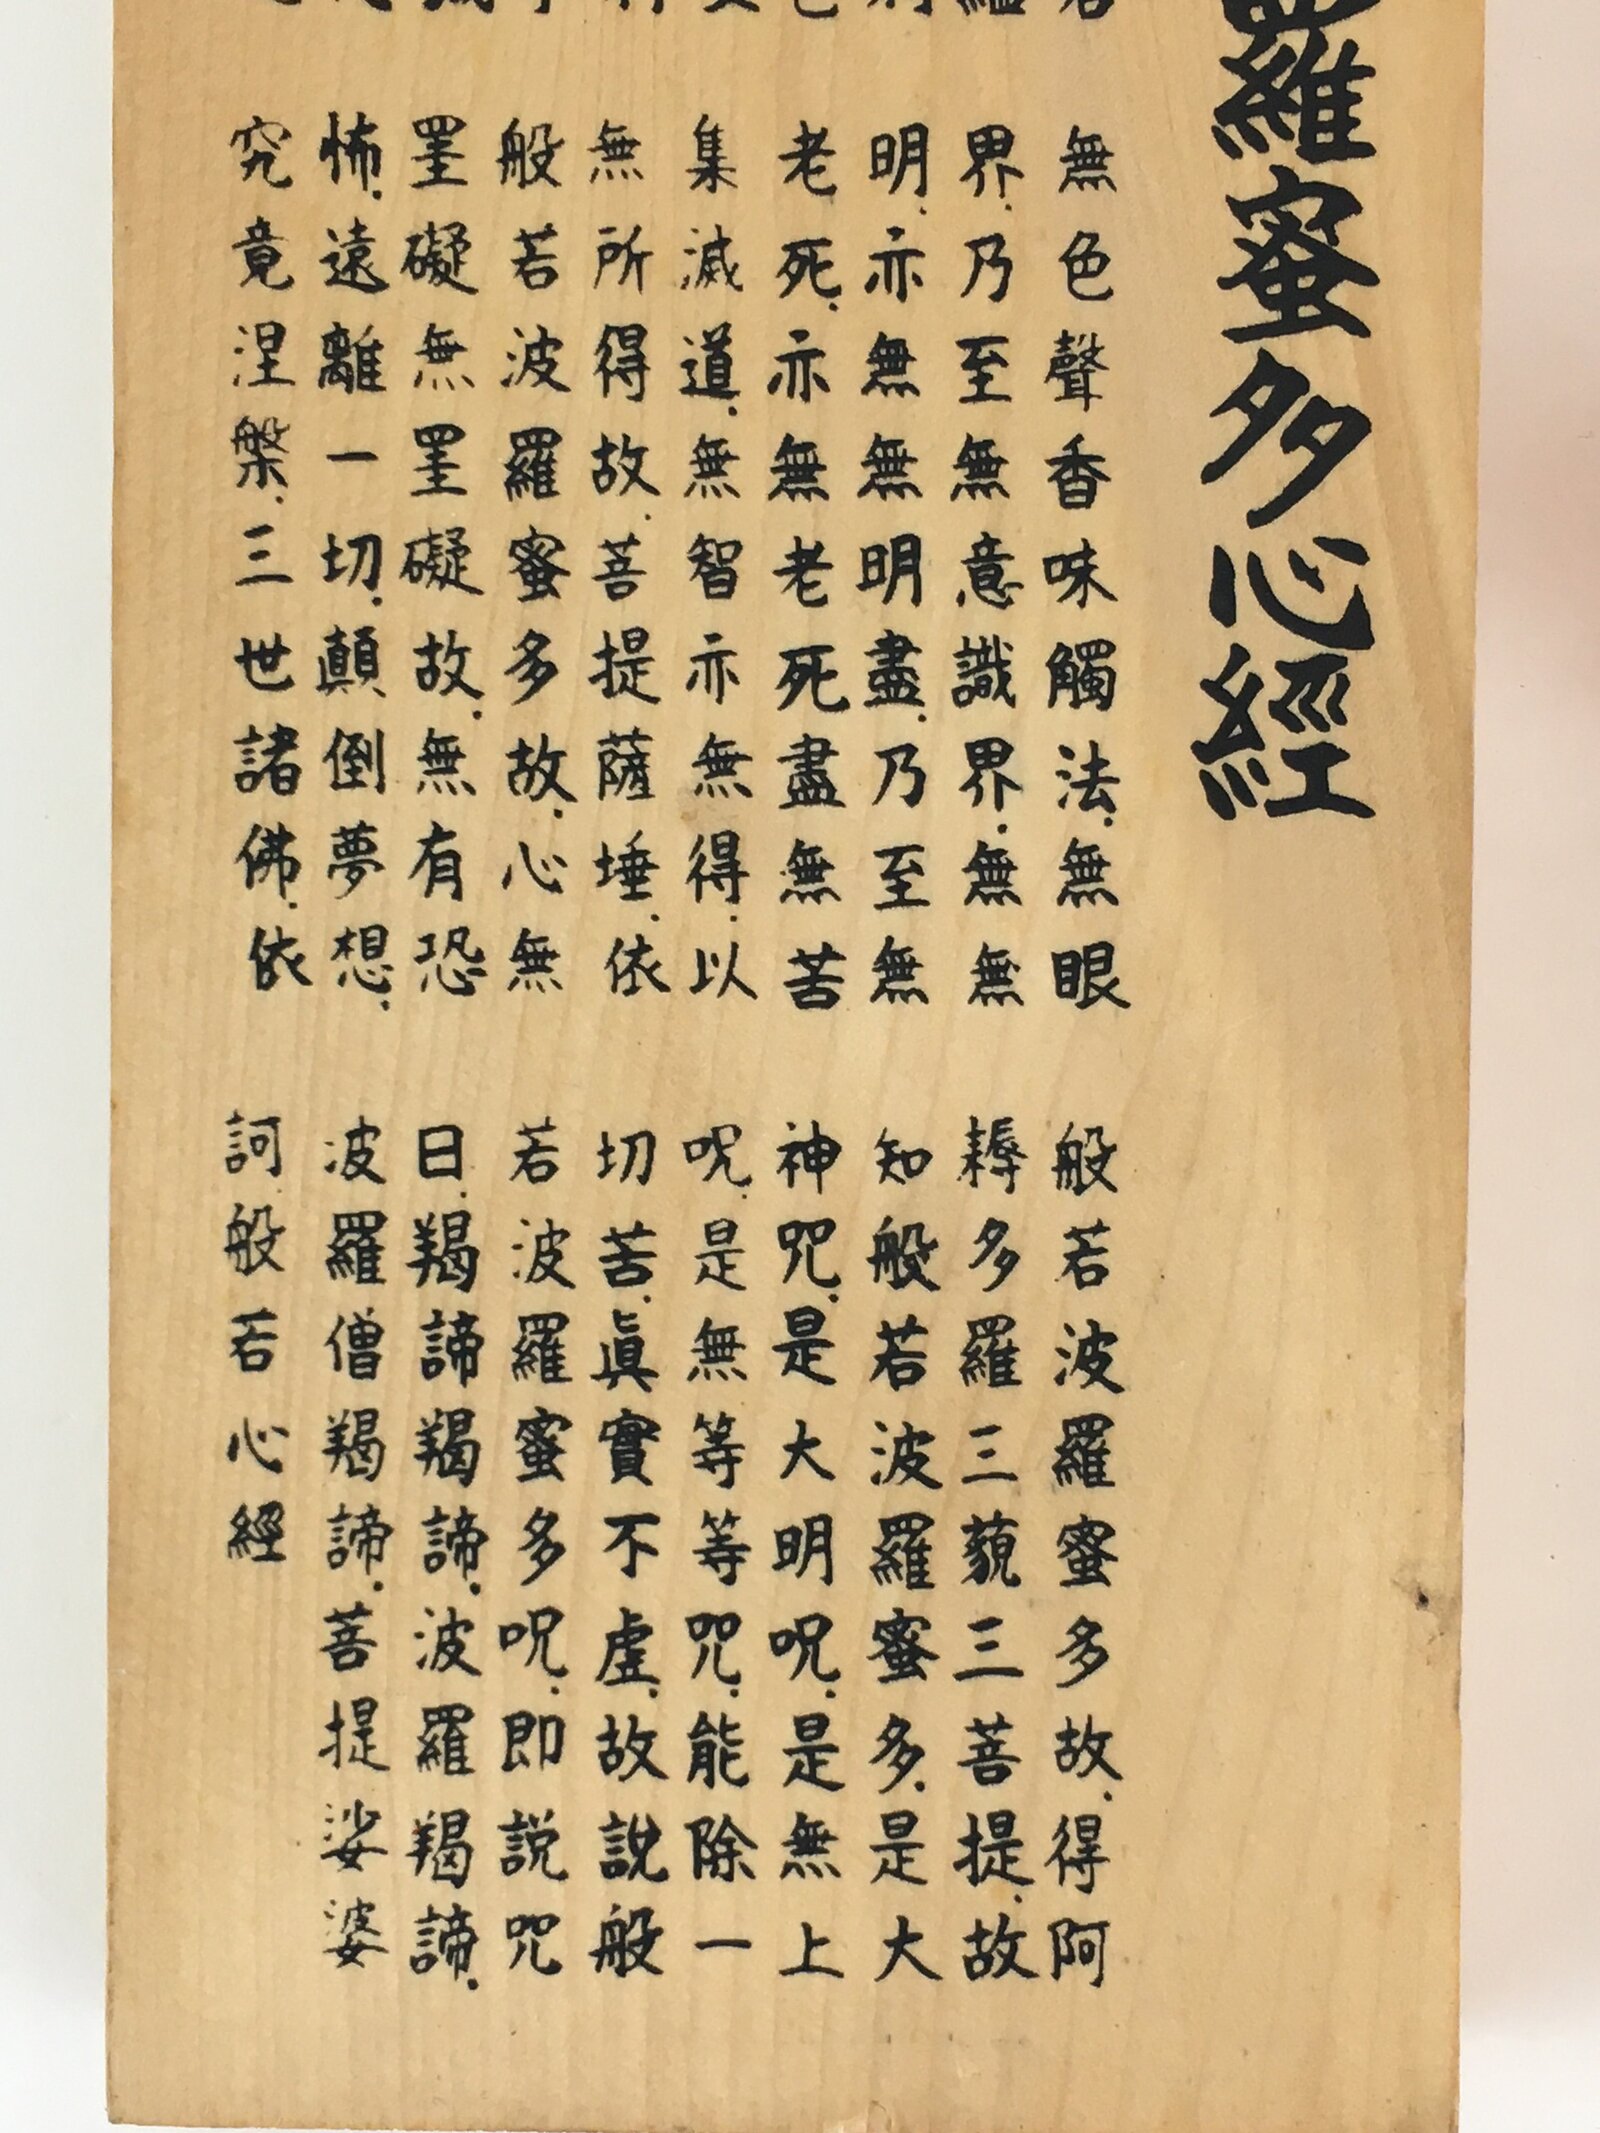 羅蜜多心經
無色聲香味觸法.無眼
界.乃至無意識界.無無
明.亦無無明盡.乃至無
老死.亦無老死盡無苦
集滅道.無智亦無得.以
無所得故.菩提薩埵.依
般若波羅蜜多故.心無
罣礙無罣礙故.無有恐
怖.遠離一切.顛倒夢想.
究竟涅槃.三世諸佛.依
般若波羅蜜多故.得阿
耨多羅三藐三菩提.故
知般若波羅蜜多.是大
神咒.是大明呪.是無上
呪.是無等等咒.能除一
切苦.眞實不虛.故說般
若波羅蜜多呪.即說咒
日.羯諦羯諦.波羅羯諦.
波羅僧羯諦.菩提娑婆
訶般若心經